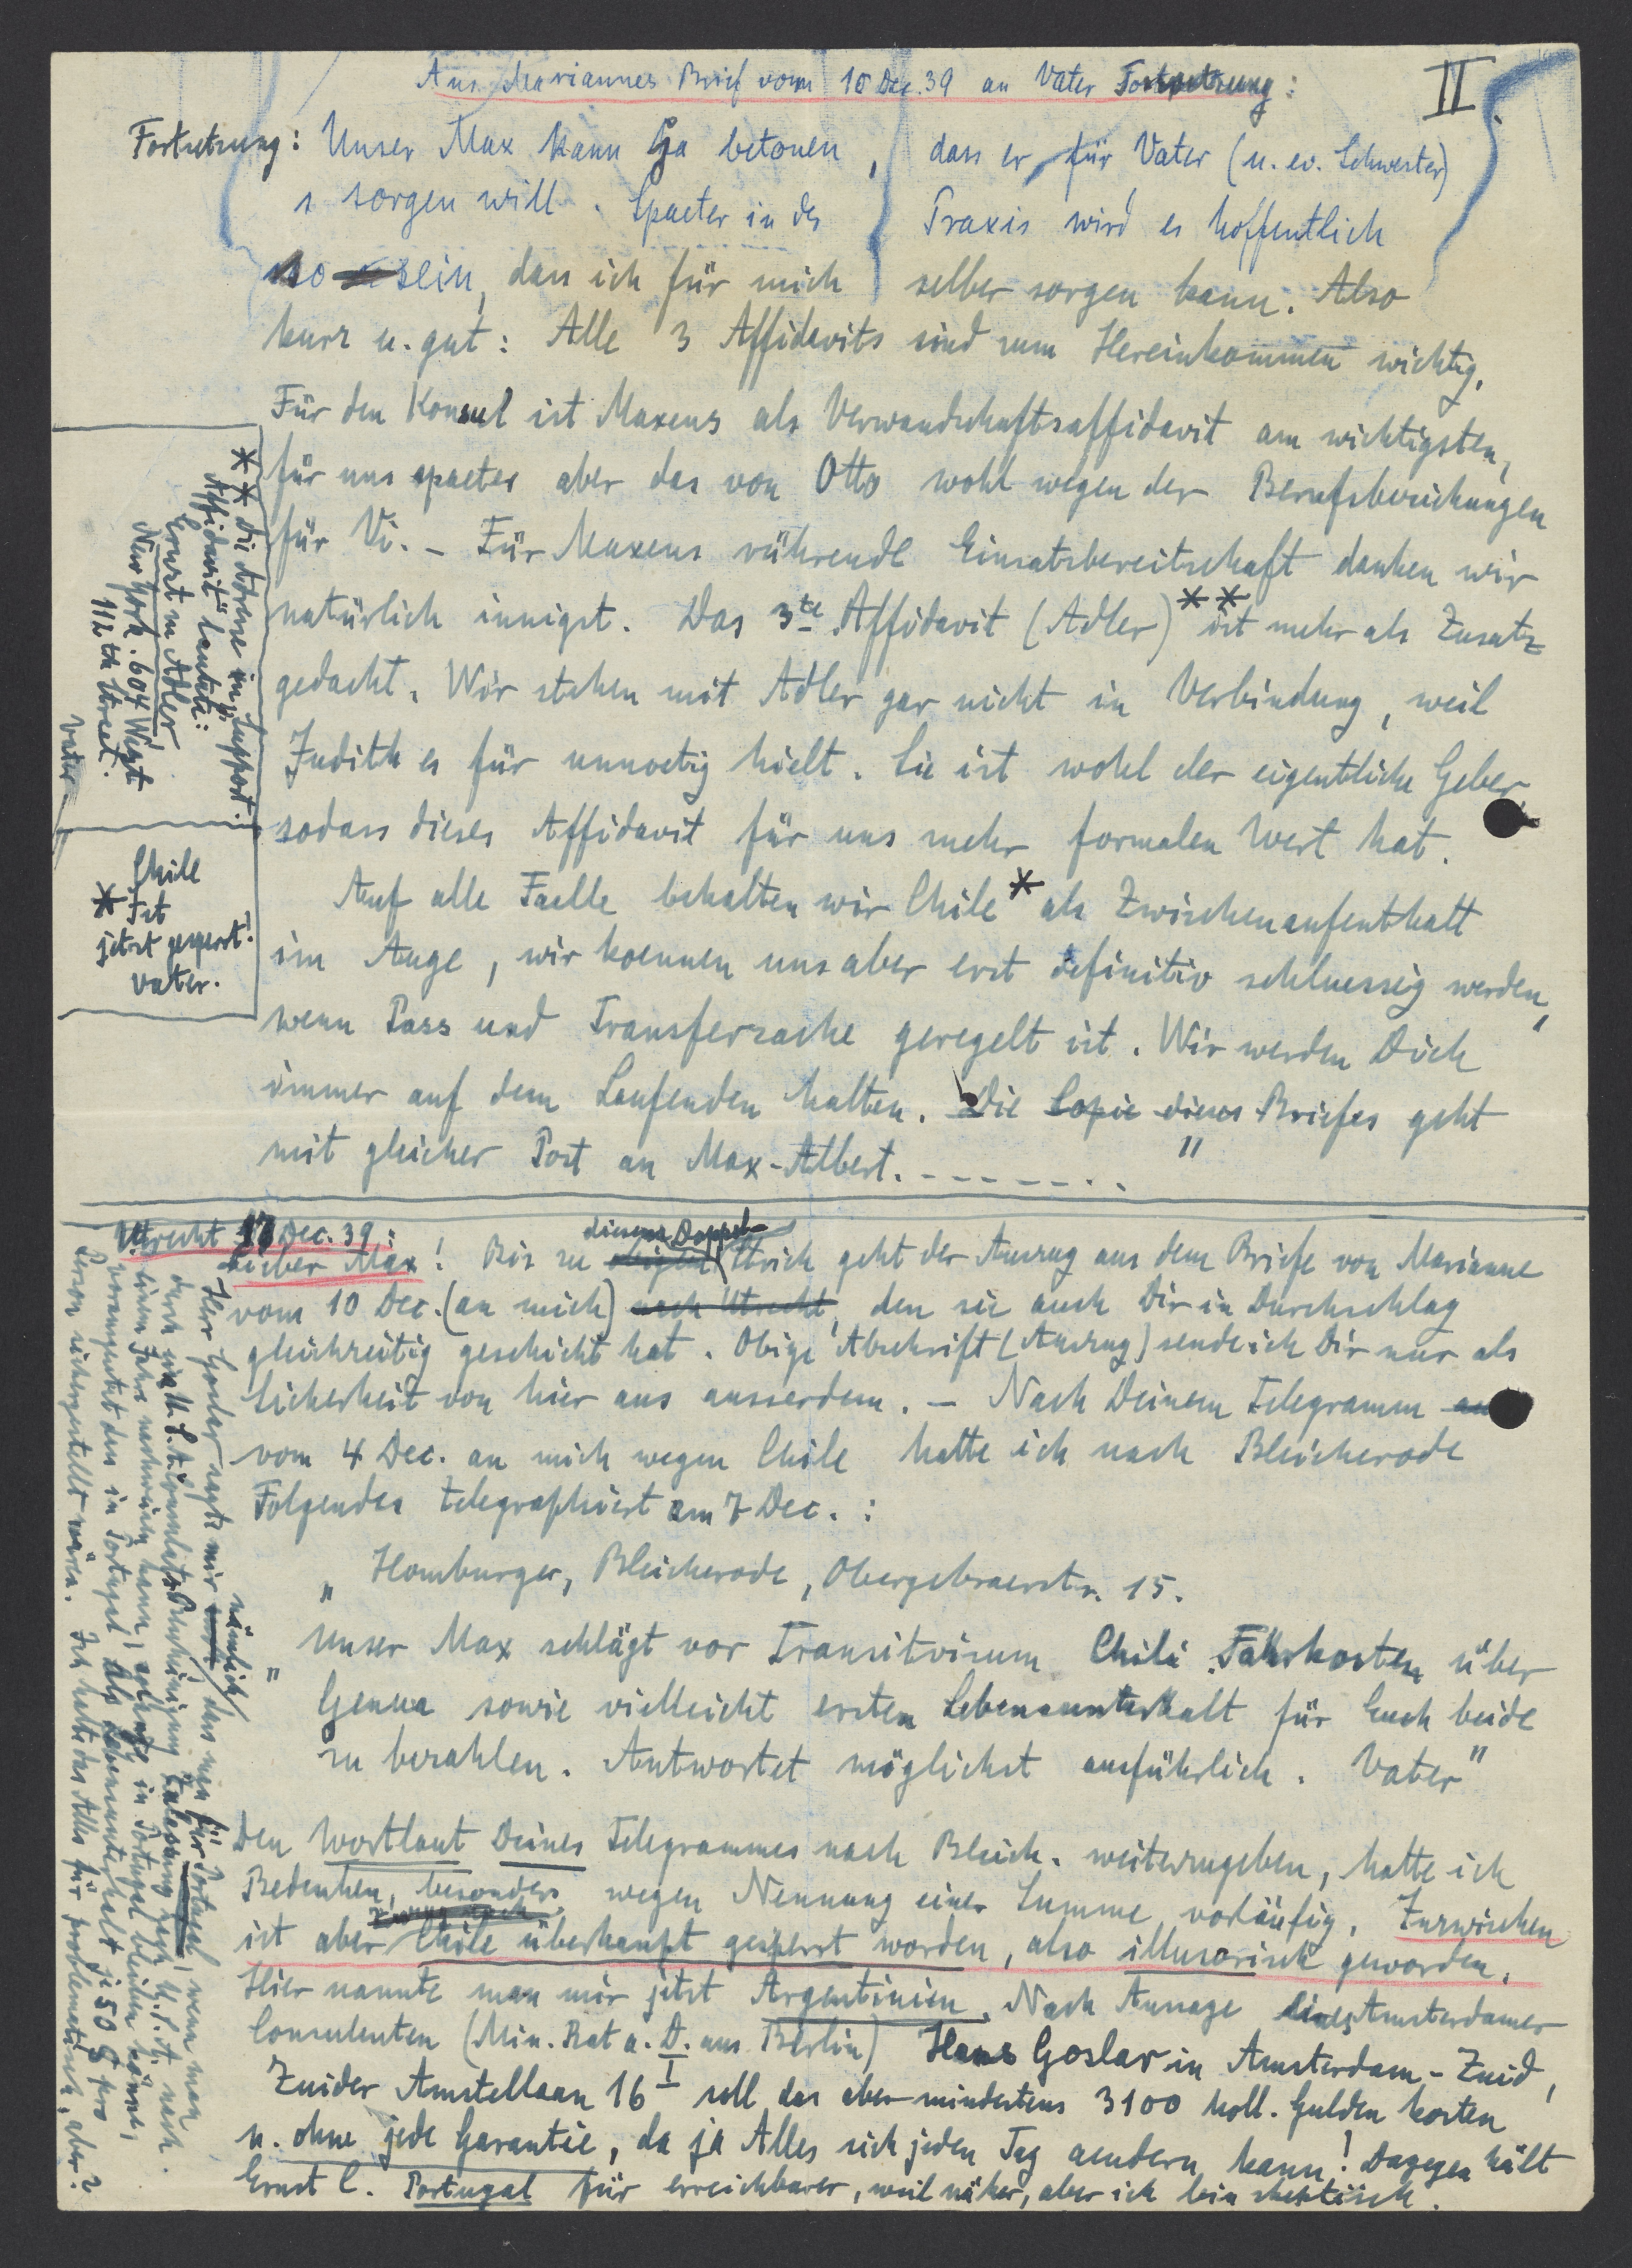 Aus Mariannes Brief vom 10 Dec. 39 an Vater Fortsetzung:
II.
Fortsetzung: Unser Max kann ja betonen, dass er für Vater (u. ev. Schwester)
sorgen will. Spaeter in der Praxis wird es hoffentlich
so sein, dass ich für mich selber sorgen kann. Also
kurz u. gut: Alle 3 Affidavits sind zum Hereinkommen wichtig,
Für den Konsul ist Maxens als Verwandschaftsaffidavit am wichtigsten,
für uns spaeter aber das von Otto wohl wegen der Berufsbeziehungen
für Vi. – Für Maxens rührende Einsatzbereitschaft danken wir
natürlich innigst. Das 3te Affidavit (Adler) ** ist mehr als Zusatz
gedacht. Wir stehen mit Adler gar nicht in Verbindung, weil
Judith es für unnoetig hielt. Sie ist wohl der eigentliche Geber,
sodass dieses Affidavit für uns mehr formalen Wert hat.
Auf alle Faelle behalten wir Chile * als Zwischenaufenthalt
im Auge, wir koennen uns aber erst definitiv schluessig werden,
wenn Pass und Transfersache geregelt ist. Wir werden Dich
immer auf dem Laufenden halten. Die Copie dieses Briefes geht
mit gleicher Post an Max-Albert. - - - - - - - . . "
** die Adresse im „Support.
Affidavit" lautete:
Ernst M Adler
New York. 604 West
112th Street.
Vater.
Chile
* Ist
jetzt gesperrt!
Vater.
Utrecht 17 Dec. 39:
Lieber Max! Bis zu diesem Doppel-Strich geht der Auszug aus dem Briefe von Marianne
vom 10 Dec. (an mich) nach Utrecht, den sie auch Dir in Durchschlag
gleichzeitig geschickt hat. Obige Abschrift (Auszug) sende ich Dir nur als
Sicherheit von hier aus ausserdem. – Nach Deinem Telegramm an
vom 4 Dec. an mich wegen Chile hatte ich nach Bleicherode
Folgendes telegraphiert am 7 Dec. :
„ Homburger, Bleicherode, Obergebraerstr. 15.
„ Unser Max schlägt vor Transitvisum Chile Fahrkosten über
Genua sowie vielleicht ersten Lebensunterhalt für Euch beide
zu bezahlen. Antwortet möglichst ausführlich. Vater"
Den Wortlaut Deines Telegrammes nach Bleich. weiterzugeben, hatte ich
Bedenken, besonders wegen Nennung einer Summe vorläufig. Inzwischen
ist aber Chile überhaupt gesperrt worden, also illusorisch geworden.
Hier nannte man mir jetzt Argentinien. Nach Aussage eines Amsterdamer
Consulenten (Min. Rat a. D. aus Berlin) Hans Goslar in Amsterdam-Zuid,
Zuider Amstellaan 16 I soll das aber mindestens 3100 holl. Gulden kosten
u. ohne jede Garantie, da ja Alles sich jeden Tag aendern kann! Dagegen hält
Ernst C. Portugal für erreichbarer, weil näher, aber ich bin skeptisch.
Herr Goslar sagte mir nämlich, dass man für Portugal, wenn man
durch eine U.S.A. Consulats Bescheinigung Zulassung nach U.S.A. nach
einem Jahre nachweisen kann, solange in Portugal bleiben könne,
vorausgesetzt dass in Portugal als Lebensunterhalt je 50 $ pro
Person sichergestellt wären. Ich halte das Alles für problematisch, aber?